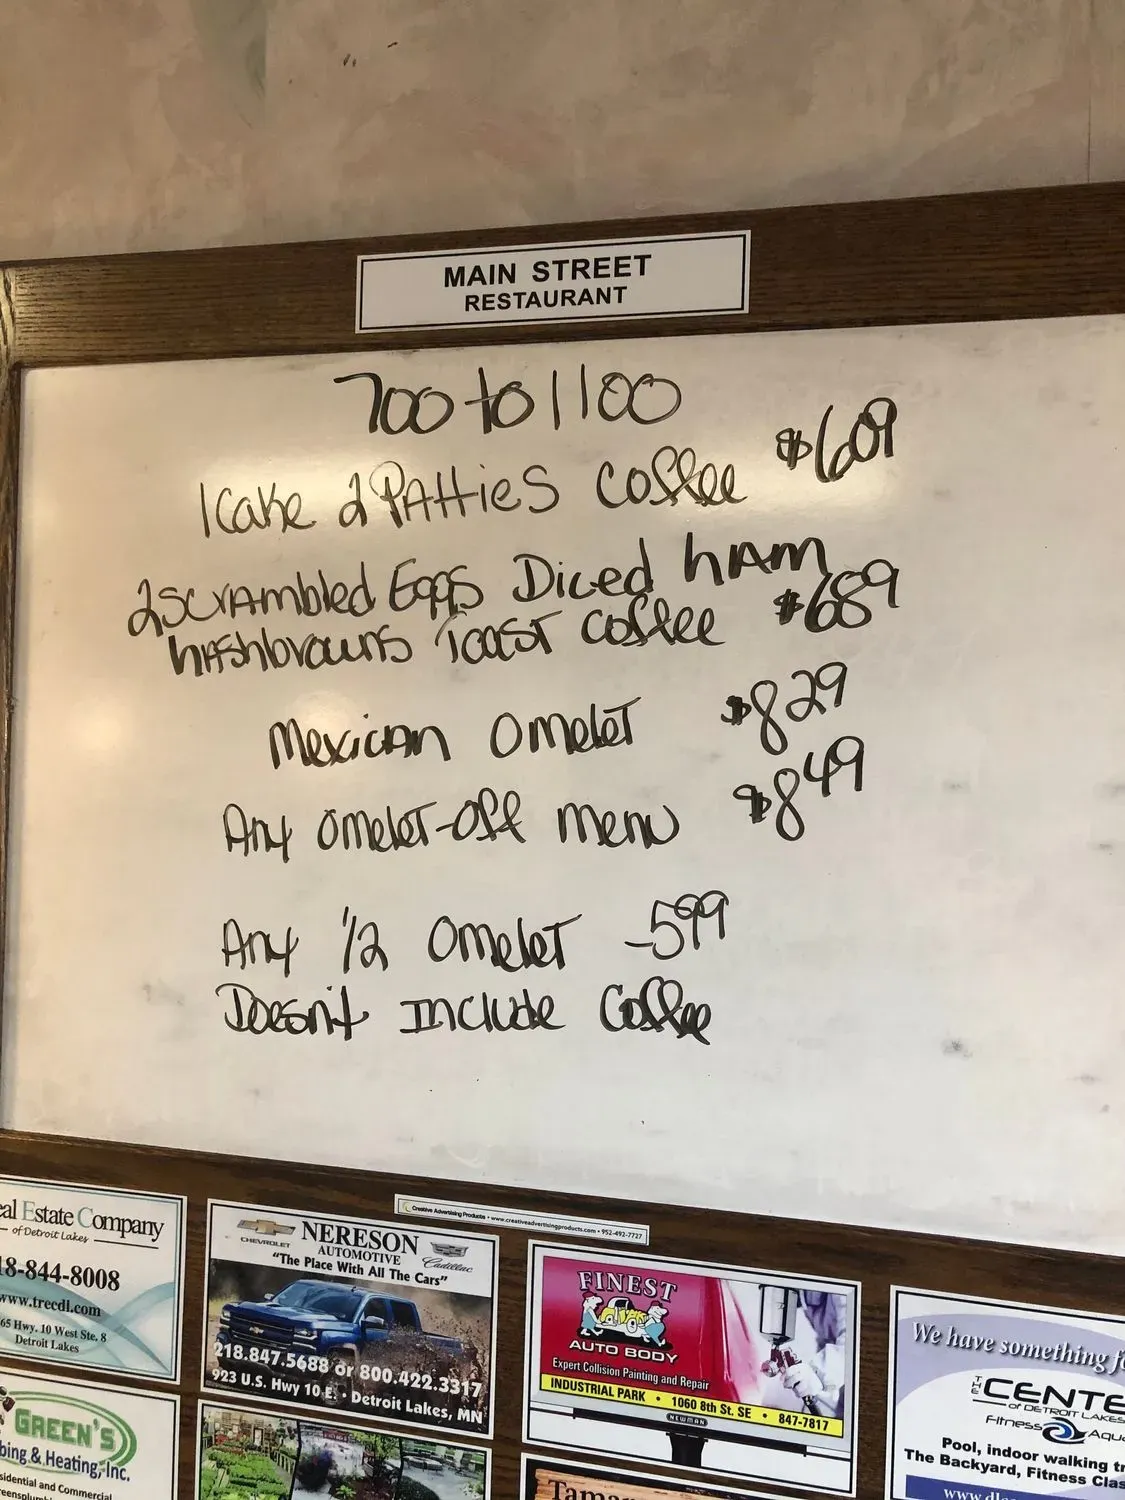 MAIN STREET
RESTAURANT
700 to 1100
1 Cake 2 PATTIES Coffee $609
2 Scrambled Eggs Diced HAM
Hashbrowns Toast Coffee $689
Mexican Omelet $829
Any Omelet-Off Menu $849
Any 1/2 Omelet -599
Doesn't Include Coffee
Creative Advertising Products • www.creativeadvertisingproducts.com • 952-492-7727
eal Estate Company
of Detroit Lakes
18-844-8008
www.treedl.com
65 Hwy. 10 West Ste. 8
Detroit Lakes
CHEVROLET NERESON Cadillac
AUTOMOTIVE
"The Place With All The Cars"
218.847.5688 or 800.422.3317
923 U.S. Hwy 10 E. • Detroit Lakes, MN
FINEST
AUTO BODY
Expert Collision Painting and Repair
INDUSTRIAL PARK • 1060 8th St. SE • 847-7817
NEWMAN
We have something f
THE CENTE
OF DETROIT LAKES
Fitness Aqua
Pool, indoor walking tr
The Backyard, Fitness Clas
www.dl
GREEN'S
bing & Heating, Inc.
sidential and Commercial
reensplum
Tamar